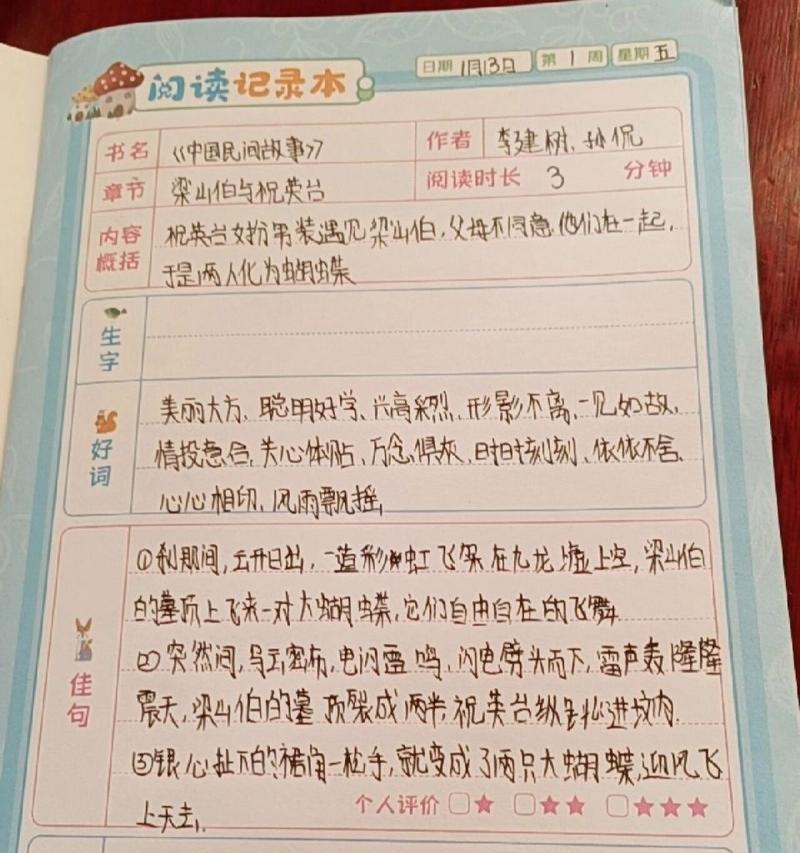 阅读记录本
日期 1月13日 第 1 周 星期 五
书名 《中国民间故事》 作者 李建树、孙侃
章节 梁山伯与祝英台 阅读时长 3 分钟
内容概括 祝英台女扮男装遇见梁山伯,父母不同意他们在一起,
于是两人化为蝴蝶
生字
好词
美丽大方、聪明好学、兴高采烈、形影不离、一见如故、
情投意合、关心体贴、万念俱灰、时时刻刻、依依不舍、
心心相印、风雨飘摇,
佳句
①刹那间,云开日出,一道彩虹飞架在九龙墟上空,梁山伯
的墓顶上飞来一对大蝴蝶,它们自由自在的飞舞
②突然间,乌云密布,电闪雷鸣,闪电劈头而下,雷声轰隆隆
震天,梁山伯的墓顶裂成两半,祝英台纵身跳进坟内.
③银心扯下的裙角一松手,就变成了两只大蝴蝶,迎风飞
上天去,
个人评价 ★ ★★ ★★★